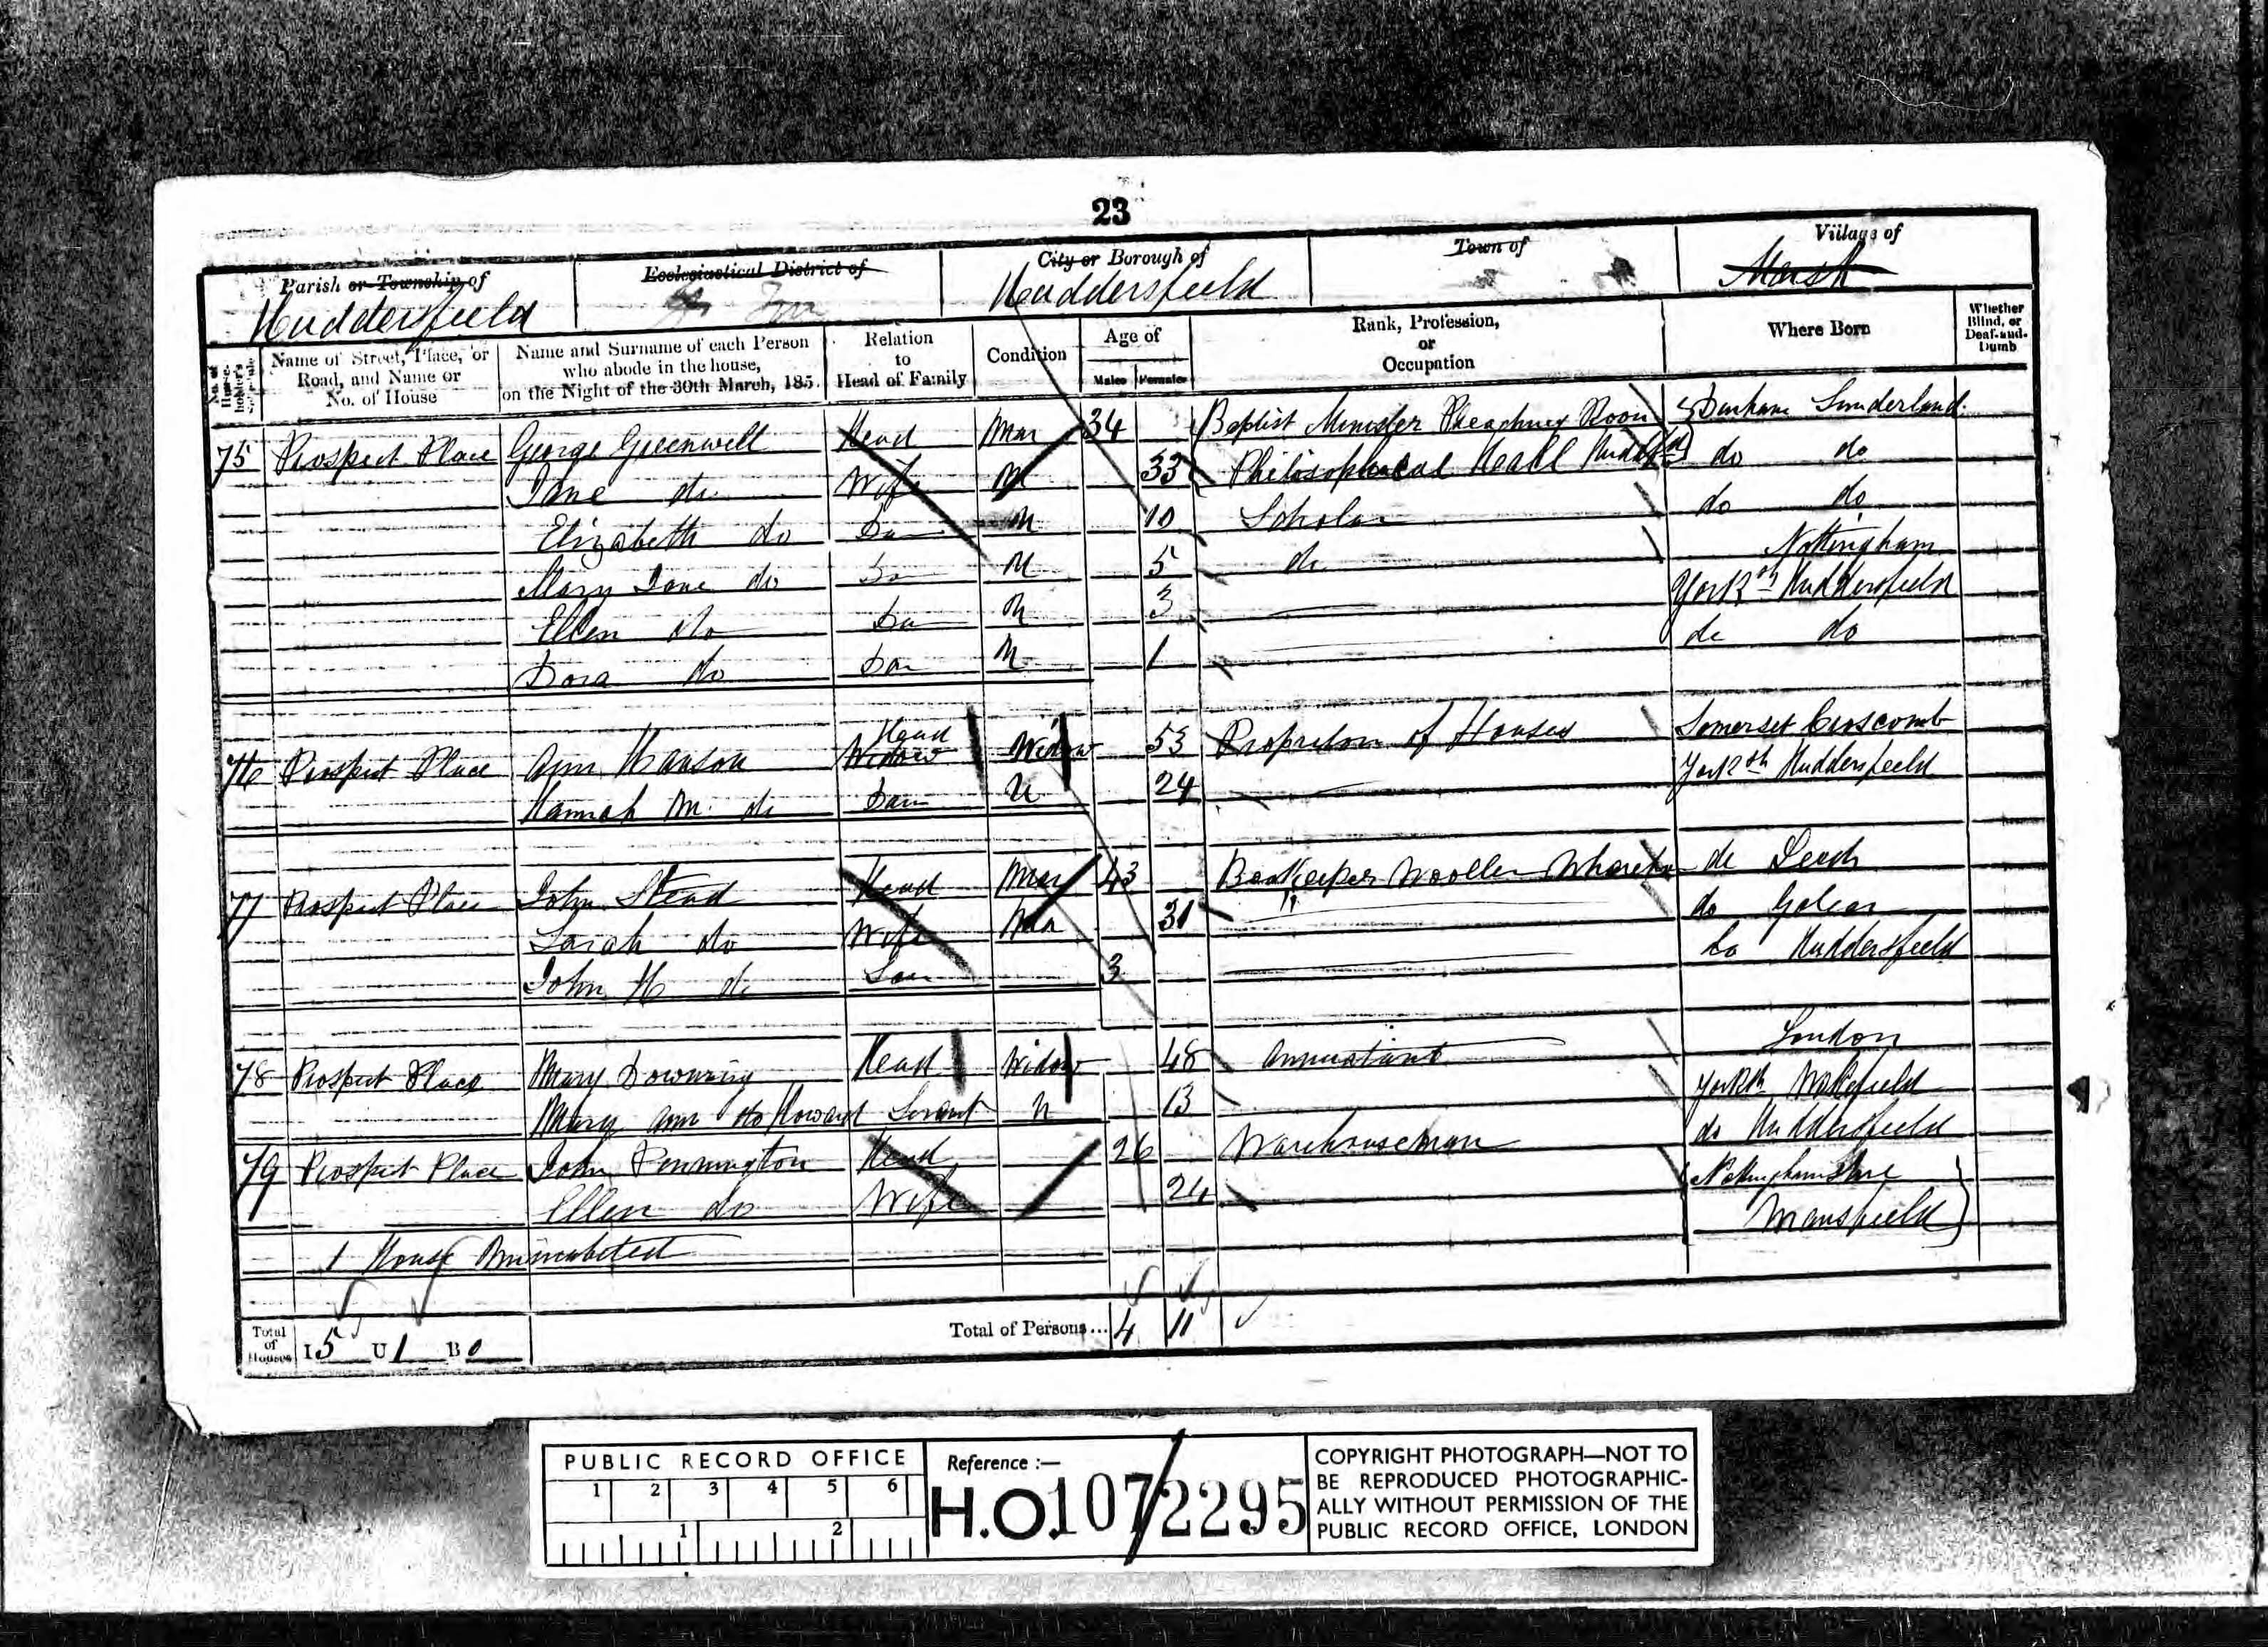 23
Parish or Township of
Huddersfield
Ecclesiastical District of
City or Borough of
Huddersfield
Town of
Village of
Marsh
No. of House-holder's Schedule
Name of Street, Place, or Road, and Name or No. of House
Name and Surname of each Person who abode in the house, on the Night of the 30th March, 185
Relation to Head of Family
Condition
Age of
Males Females
Rank, Profession, or Occupation
Where Born
Whether Blind, or Deaf-and-Dumb
75 Prospect Place George Greenwell Head Mar 34 Baptist Minister Preaching Room Durham Sunderland
Jane do Wife M 33 Philosophical Hall do do
Elizabeth do Dau 10 Scholar do do
Mary Jane do Da 5 do Nottingham
Ellen do Da 3 Yorksh Huddersfield
Dora do Dau 1 do do
76 Prospect Place Ann Hanson Head Widow Widow 53 Proprietor of Houses Somerset Croscomb
Hannah M. do Dau U 24 Yorksh Huddersfield
77 Prospect Place John Stead Head Mar 43 Bookkeeper Woollen do Leeds
Sarah do Wife Mar 31 do Golcar
John H do Son 3 Do Huddersfield
78 Prospect Place Mary Downing Head Widow 48 Annuitant London
Mary Ann do Howard Servant U 13 Yorksh Wakefield
79 Prospect Place John Pennington Head 26 Warehouseman do Huddersfield
Ellen do Wife 24 Nottinghamshire
Mansfield
1 House Uninhabited
Total of Houses I 5 U 1 B 0 Total of Persons... 4 11
PUBLIC RECORD OFFICE
1 2 3 4 5 6
1 2
Reference :—
H.O. 107/2295
COPYRIGHT PHOTOGRAPH—NOT TO
BE REPRODUCED PHOTOGRAPHIC-
ALLY WITHOUT PERMISSION OF THE
PUBLIC RECORD OFFICE, LONDON